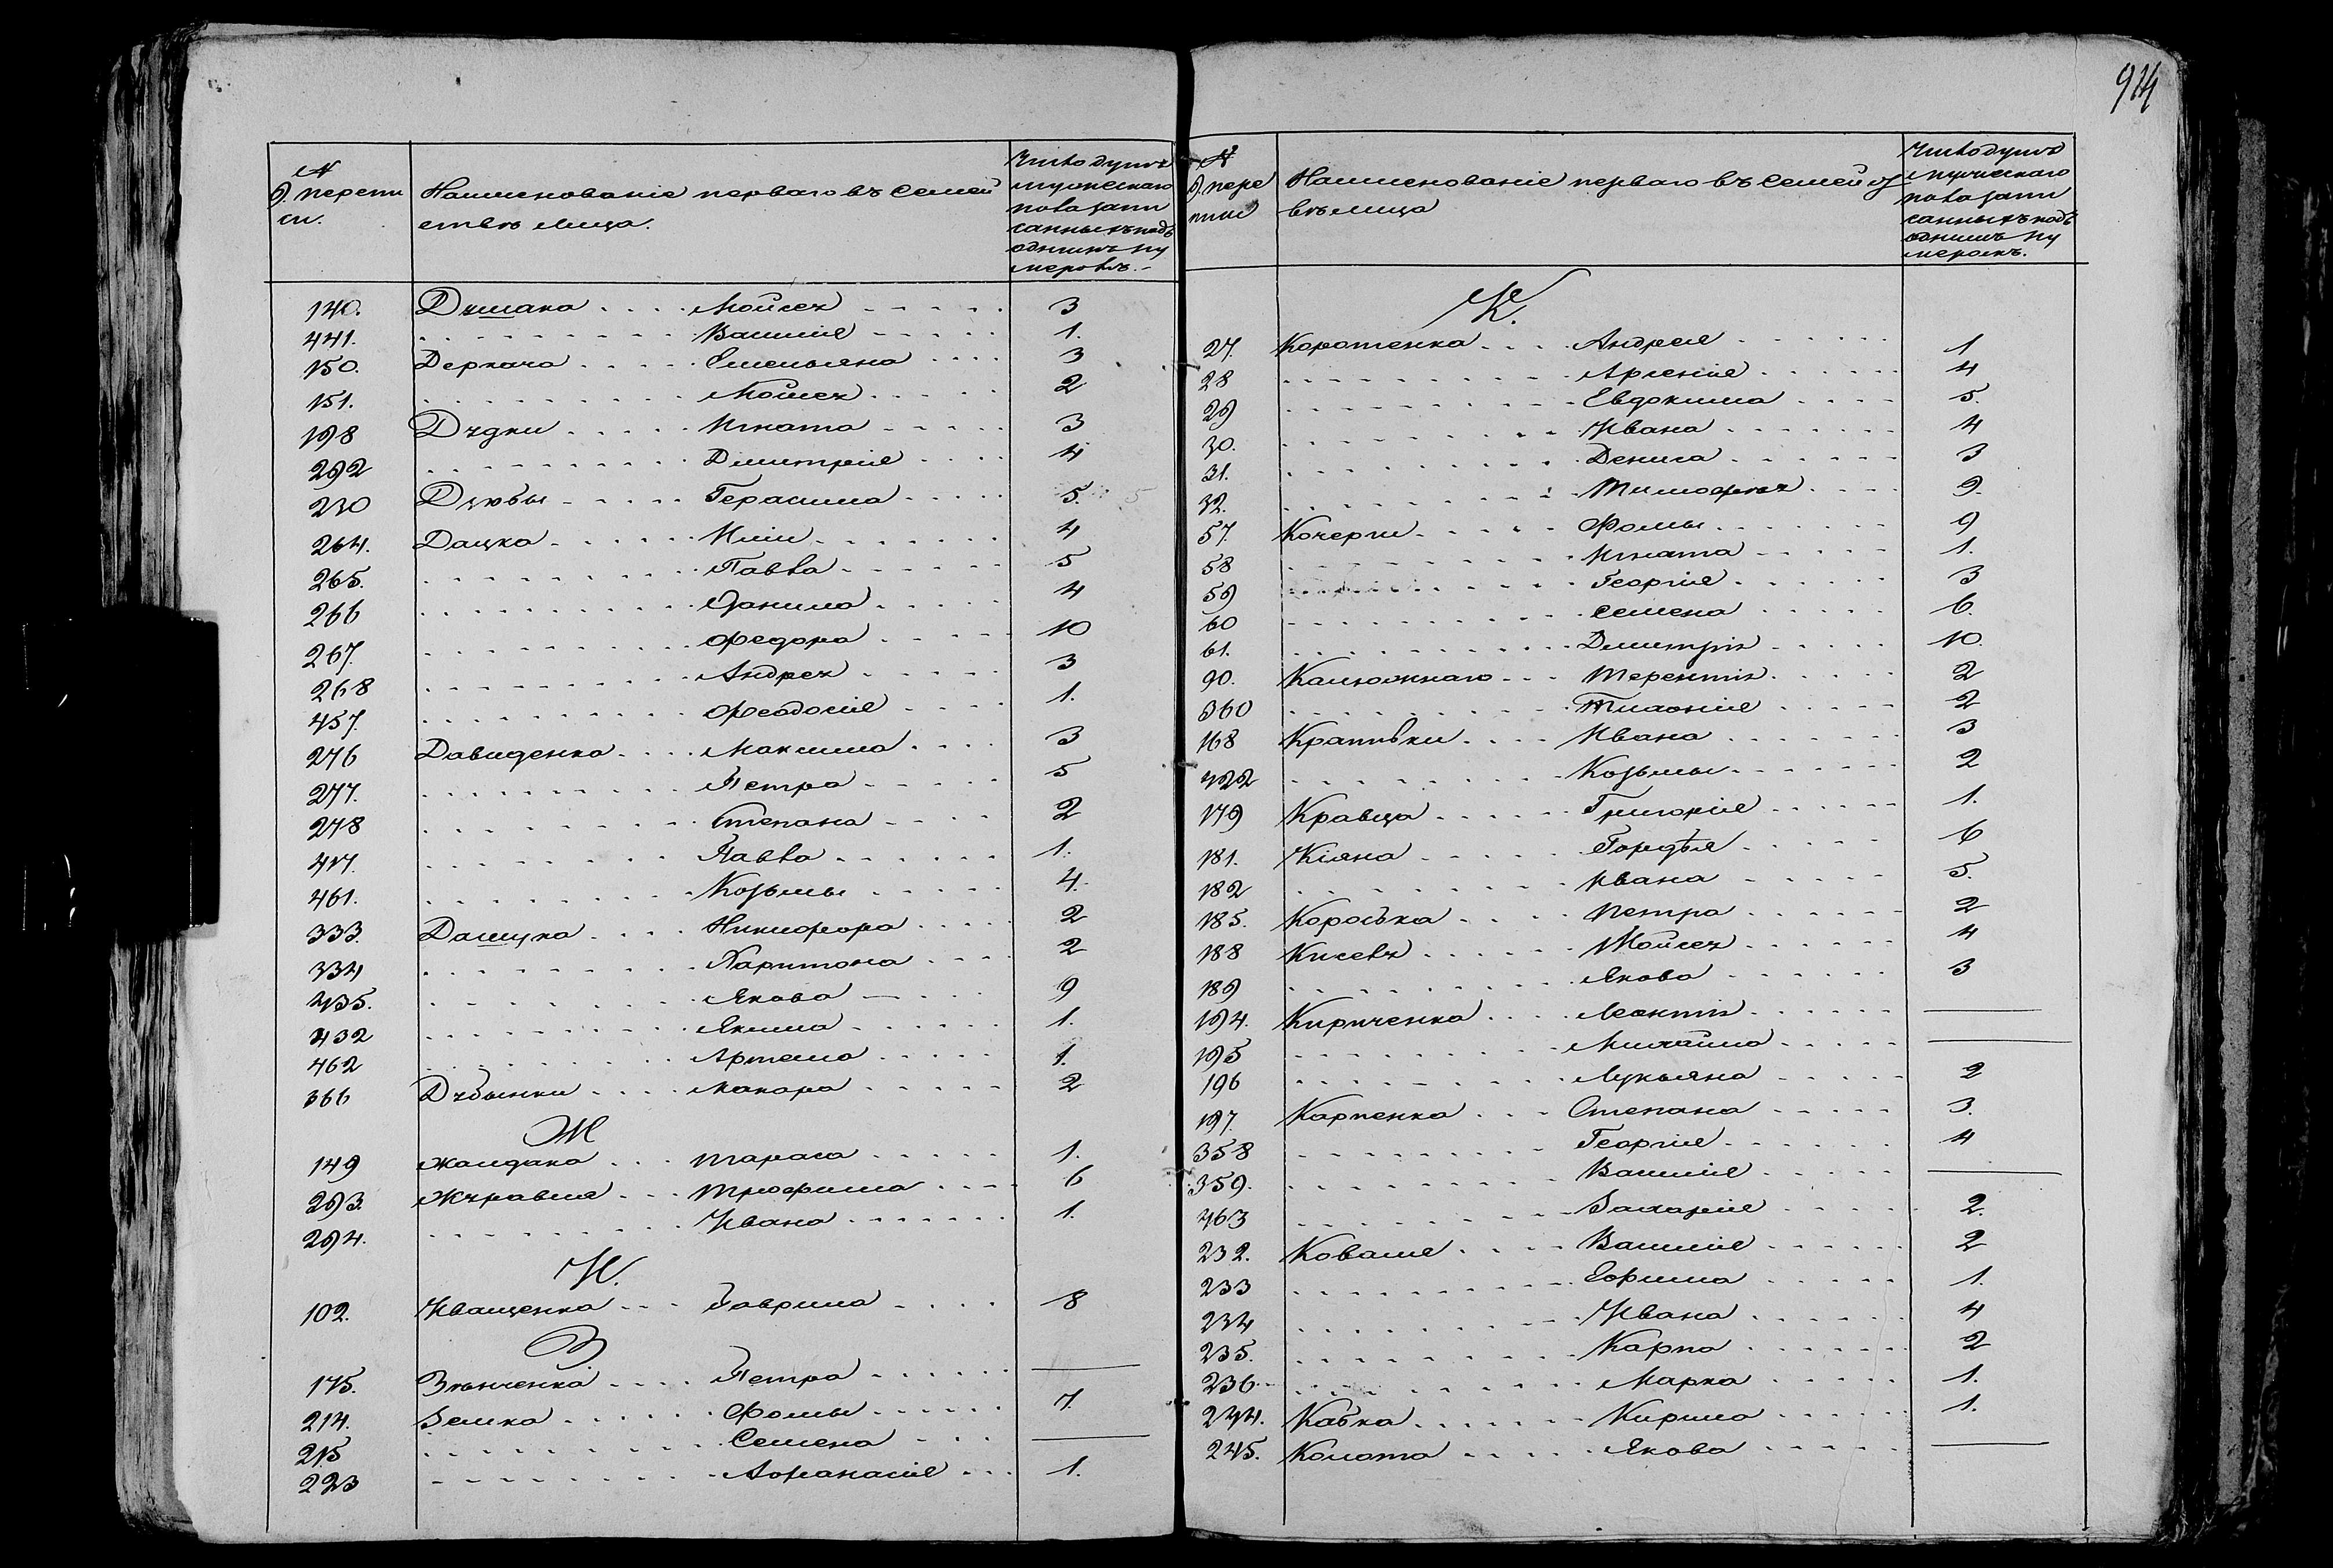 914
№
д. перепи
си.
Наименованіе перваго въ семей
ствѣ лица.
Число душъ
мужескаго
пола запи
санныхъ подъ
однимъ ну
меромъ.
140. Думана Мойсея 3
441. Василія 1.
150. Деркача Емельяна 3
151. Мойсея 2
198 Дудки Игната 3
292 Димитрія 4
230 Дзюбы Герасима 5.
264. Дацка Иліи 4
265. Павла 5
266 Данила 4
267. Федора 10
268 Андрея 3
457. Феодосія 1.
276 Давиденка Максима 3
277. Петра 5
278 Степана 2
417. Павла 1.
461. Козьмы 4.
333. Никифора 2
334 Харитона 2
435. Якова 9
432 Якима 1.
462 Артема 1.
366 Дубынки Макара 2
Ж
149 Жолдака Тараса 1.
293. Журавля Трофима 6
294. Ивана 1.
И.
102. Иващенка Гаврила 8
З
175. Зѣнченка Петра —
214. Земка Фомы 7.
215 Семена —
223 Афанасія 1.
№
д. пере
писи
Наименованіе перваго въ семейст
вѣ лица
Число душъ
мужескаго
пола запи
санныхъ подъ
однимъ ну
меромъ.
К.
27. Коротенка Андрея 1
28 Арсенія 4
29 Евдокима 5.
30. Ивана 4
31. Дениса 3
32. Тимофея 9.
57. Кочерги Фомы 9
58 Игната 1.
59 Георгія 3
60 Семена 6.
61. Димитрія 10.
90. Калюжнаго Терентія 2
360 Тихонія 2
168 Крапивки Ивана 3
422 Козьмы 2
179 Кравца Григорія 1.
181. Кіяна Гордѣя 6
182 Ивана 5.
185. Петра 2
188 Киселя Мойсея 4
189 Якова 3
194. Кириченка Леонтія —
195 Михайла —
196 Лукьяна 2
197. Карпенка Степана 3.
358 Георгія 4
359. Василія —
463 Захарія 2.
232. Коваля Василія 2
233 Ефима 1.
234 Ивана 4
235. Карпа 2
236 Марка 1.
244. Кабка Кирила 1.
245. Колота Якова —